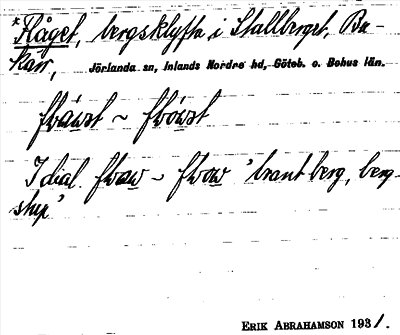 *Flåget, bergsklyfta i Stallberget, Ba-
kån, Jörlanda sn, Inlands Nordre hd, Göteb. o. Bohus län.
I dial. ~ 'brant berg, berg-
stup'
ERIK ABRAHAMSON 1931.